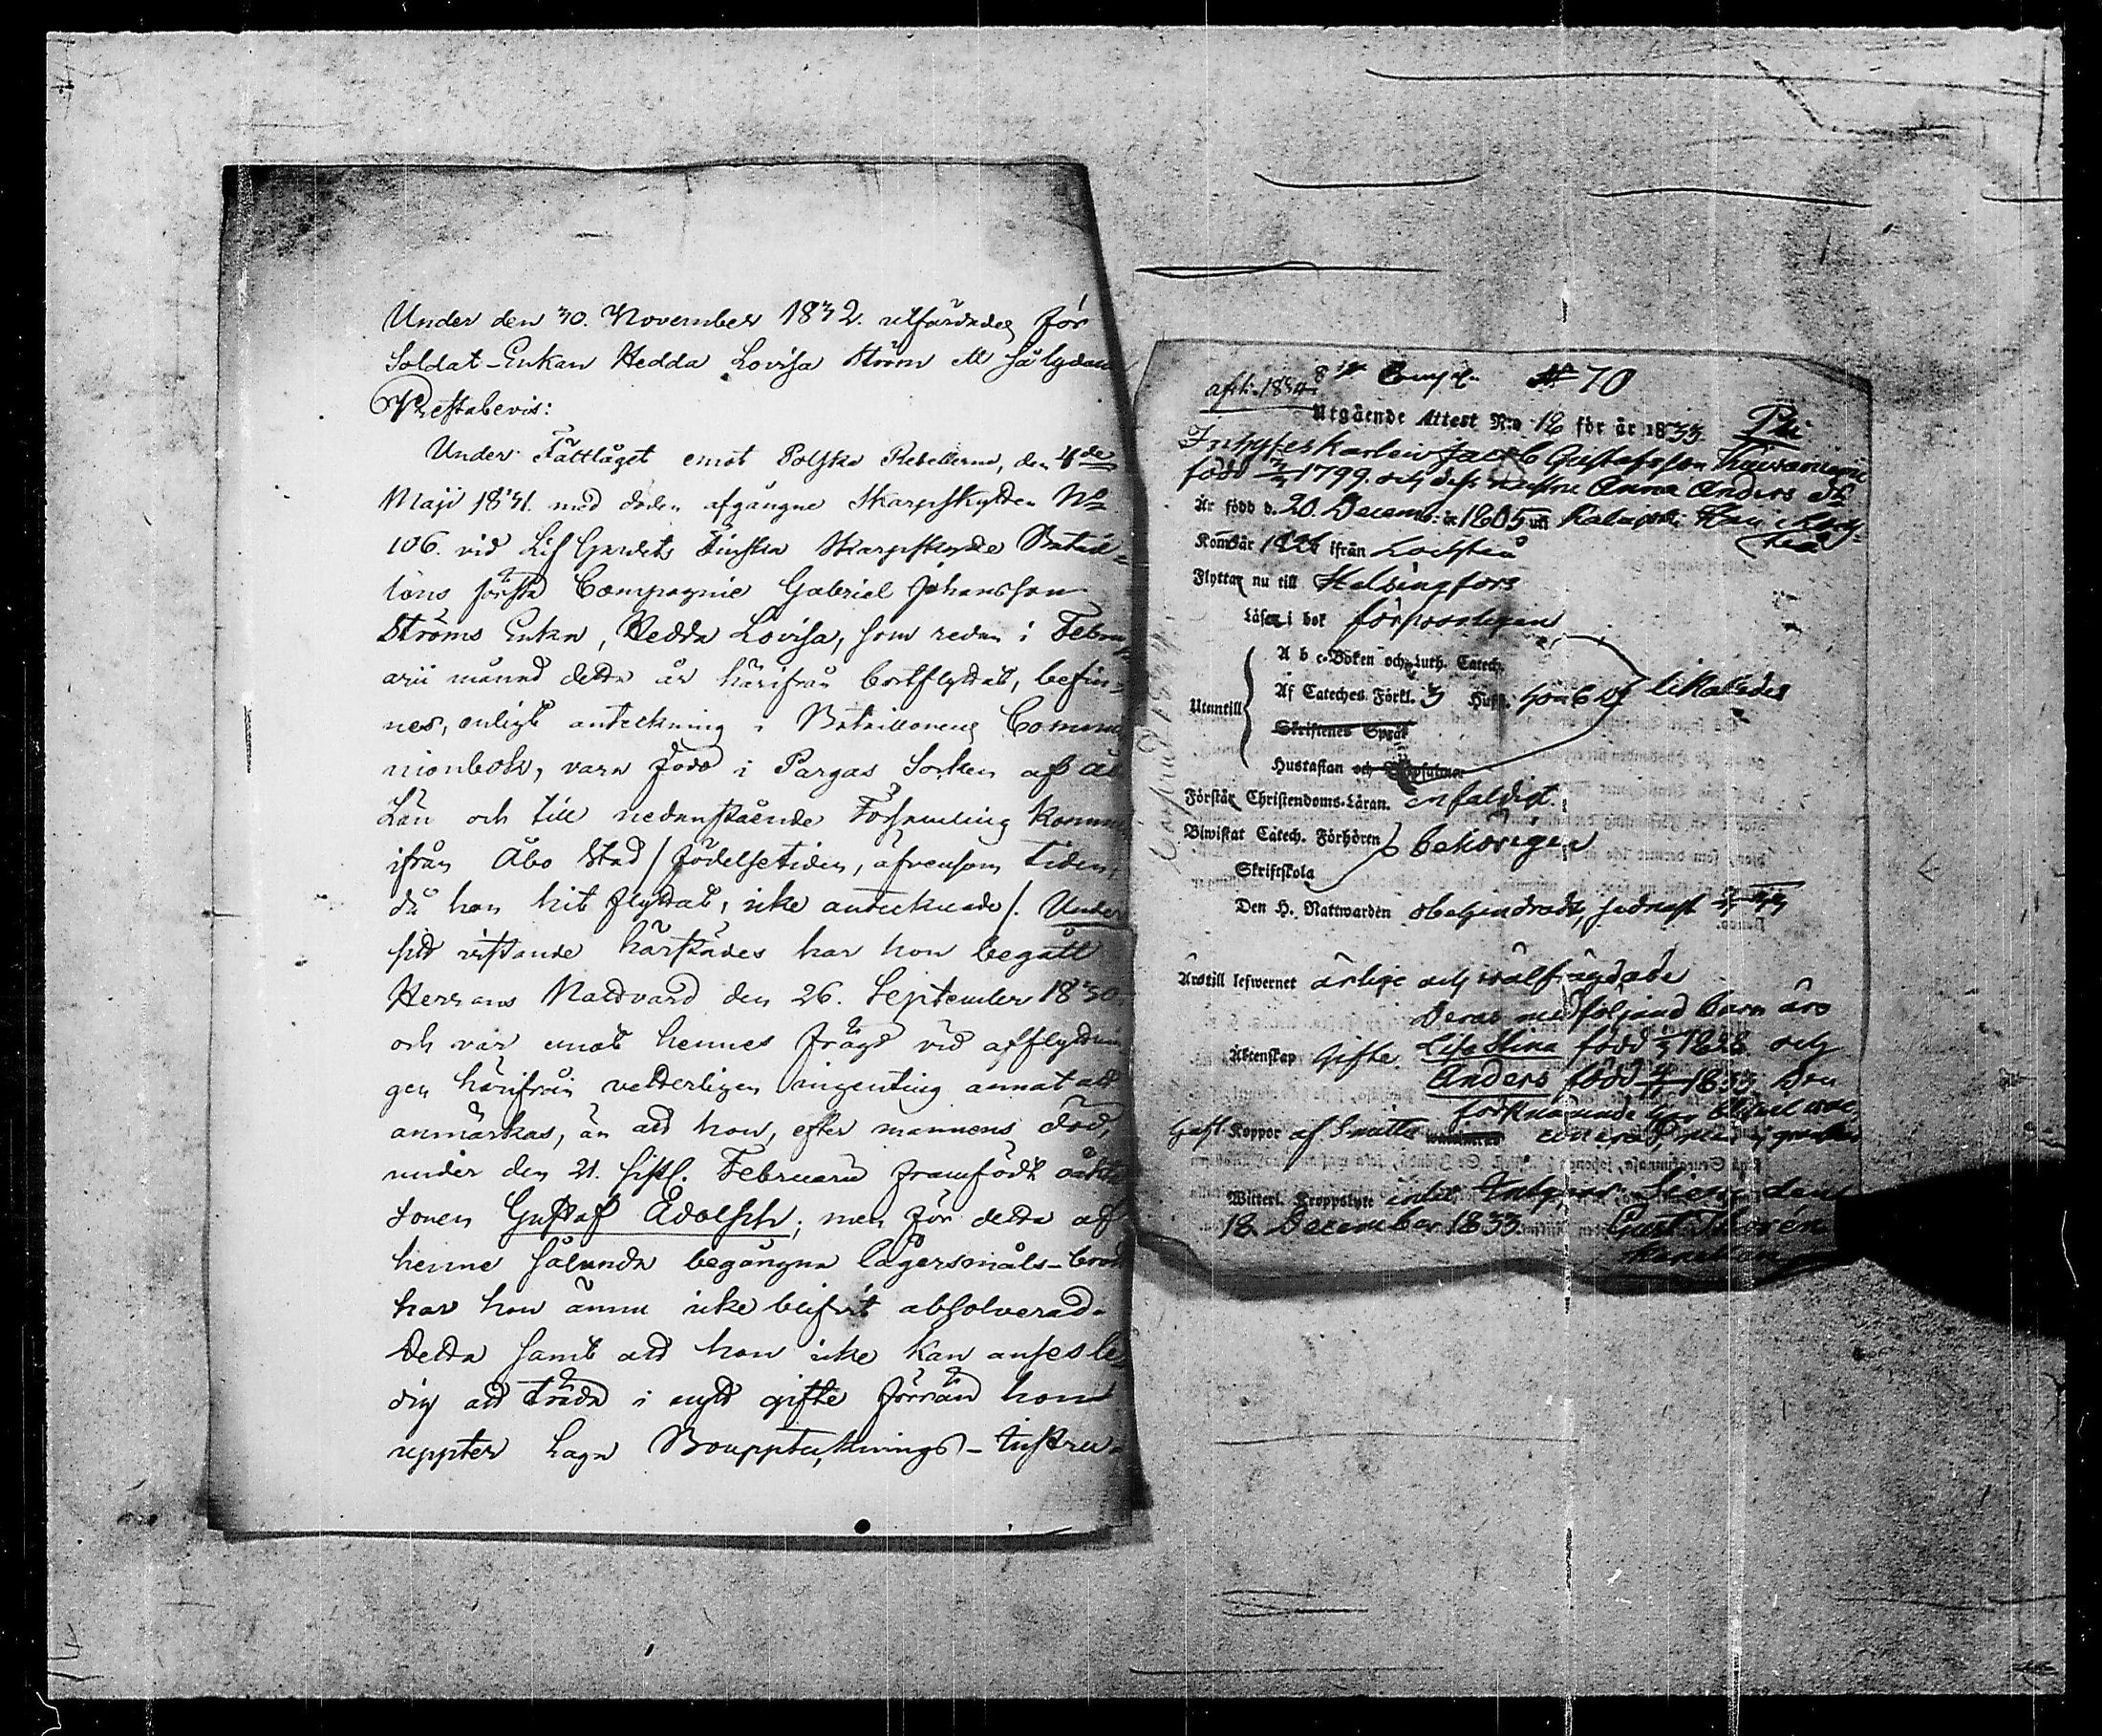 Under den 30. November 1832. utfärdades för
Soldat-Enkan Hedda Lovisa Ström ett så lydande
Prestabevis:
Under Fälttåget emot Polska Rebellerne, den 4de
Maji 1831. med döden afgångne Skarpskytten No
106. vid Lif Gardets Finska Skarpskytte Batail-
lons första Compagnie Gabriel Johansson
Ströms Enka, Hedda Lovisa, som redan i Febru-
arii månad detta år härifrån bortflyttat, befin-
nes, enligt anteckning i Bataillonens Commu-
nionbok, vara född i Pargas Socken af Åbo
Län och till nedanstående Församling kommen
ifrån Åbo Stad /födelsetiden, äfvensom tiden,
då hon hit flyttat, icke antecknade/. Under
sitt vistande härstädes har hon begått
Herrans Nattvard den 26. September 1830.
och var emot hennes frägd vid afflyttnin-
gen härifrån vetterligen ingenting annat att
anmärkas, än att hon, efter mannens död,
under den 21. sistl. Februarii framfödt oäkta
sonen Gustaf Adolph; men för detta af
henne sålunda begångna lägersmåls-brott
har hon ännu icke blifvit absolverad.
Detta samt att hon icke kan anses le-
dig att träda i nytt gifte förrän hon
uppter laga Boupptecknings-Instru-
afsk. 1834 8 Comp. No 70
Utgående Attest N:o 12 för år 1833
Inhyseskarlen Jacob Gustafsson
född 1799. och dess hustru Anna Anders dr
Är född d. 20. Decemb: år 1805 uti
Kom år 1826 ifrån Lochteå
Flyttar nu till Helsingfors
Läser i bok försvarligen
Utantill A b c-Boken och Luth. Catech.
Af Cateches. Förkl. 3 Hust. hon 6 likaledes
Skriftenes Språk
Hustaflan och
Förstår Christendoms-Läran. enfaldigt.
Biwistat Catech. Förhören behörigen
Skriftskola
Den H. Nattwarden obehindradt, sednast
Är till lefwernet ärlige och wälfrägdade
Deras medföljand barn äro
Äktenskap Gifte. Lisa Stina född 1828 och
Anders född 1833 Den
förstnämnde
Haft Koppor af
Witterl. Kroppslyte intet
18 December 1833. Gust. Thorén